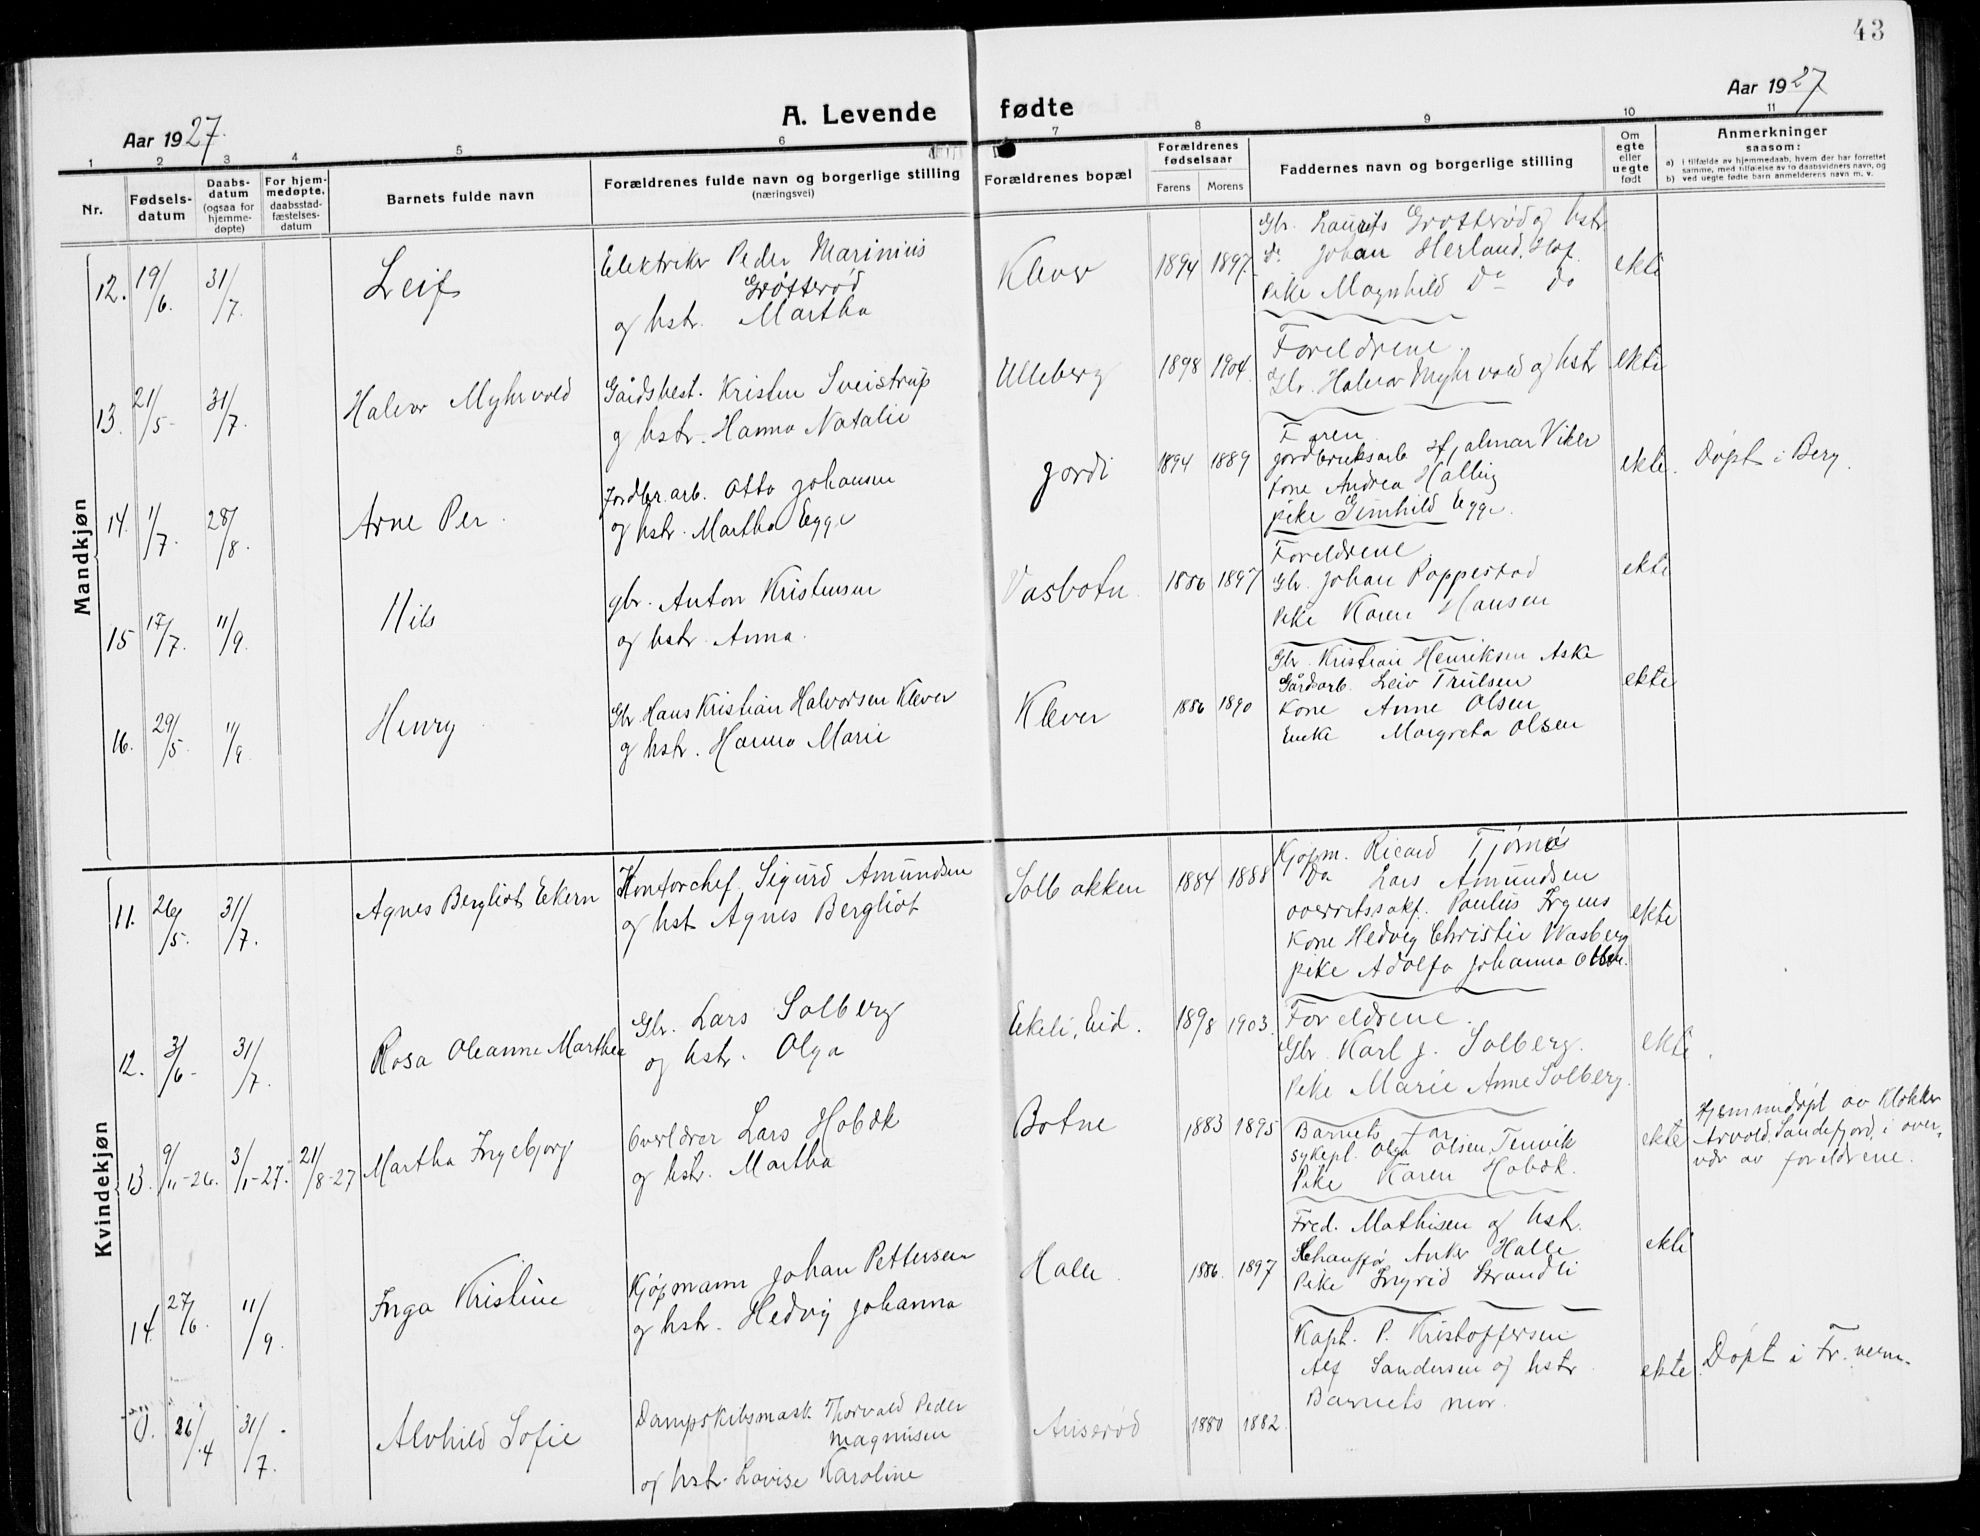 43
Aar 1927.
A. Levende fødte
Aar 1927
1 2 3 4 5 6 7 8 9 10 11
Nr.
Fødsels-
datum
Daabs-
datum
(ogsaa for
hjemme-
døpte)
For hjem-
medøpte,
daabsstad-
fæstelses-
datum
Barnets fulde navn
Forældrenes fulde navn og borgerlige stilling
(næringsvei)
Forældrenes bopæl
Forældrenes
fødselsaar
Farens Morens
Faddernes navn og borgerlige stilling
Om
egte
eller
uegte
født
Anmerkninger
saasom:
a) i tilfælde av hjemmedaab, hvem der har forrettet
samme, med tilføielse av to daabsvidners navn, og
b) ved uegte fødte barn anmelderens navn m. v.
Mandkjøn
12. 19/6. 31/7. Leif
Elektriker Peder Marinius
Grøtterød
og hstr. Martha
Klever 1894 1897.
Gbr. Laurits Grøtterød og hstr
Do Johan Herland, Hof.
Pike Magnhild Do Do
ekte
13. 21/5- 31/7. Halvor Myhrvold
Gårdsbest. Kristen Sveistrup
og hstr. Hanna Natalie
Ulleberg 1898 1904.
Foreldrene.
Gbr. Halvor Myhrvold og hstr
ekte
14. 1/7. 28/8. Arne Per.
Jordbr.arb. Otto Johansen
og hstr. Martha Egge
Jordi 1894 1889
Faren
Jordbruksarb Hjalmar Viker
Kone Andrea Halling
pike Gunhild Egge.
ekte. Døpt i Berg.
15 17/7. 11/9. Nils
gbr. Anton Kristensen
og hstr. Anna.
Vasbotn 1886 1897
Foreldrene.
Gbr. Johan Roppestad
Pike Karen Hansen
ekte
16. 29/5. 11/9 Henry
Gbr Hans Kristian Halvorsen Klever
og hstr. Hanna Marie
Klever 1886 1890
Gbr. Kristian Henriksen Aske
Gårdsarb. Leiv Trulsen
Kone Anne Olsen
Enke Margreta Olsen
ekte
Kvindekjøn
11. 26/5. 31/7. Agnes Bergliot Eekern
Kontorchef Sigurd Amundsen
og hst Agnes Bergliot
Solbakken 1884 1888
Kjøpm. Ricard Tjømø
Do Lars Amundsen
overretssakf. Paulus Irgens
Kone Hedvig Christie Wasberg
pike Adolfa Johanna Olsen.
ekte
12. 3/6- 31/7. Rosa Oleanne Marthea
Gbr. Lars Solberg
og hstr. Olga
Eekeli, Eid. 1898 1903.
Foreldrene.
Gbr. Karl J. Solberg.
Pike Marie Anne Solberg.
ekte.
13. 9/11-26. 3/1-27. 21/8-27 Martha Ingebjorg
Overlærer Lars Hobæk
og hstr. Martha
Botne 1883 1895
Barnets far
sykepl. Olga Olsen Tenvik
Pike Karen Hobæk.
ekte
Hjemmedøpt av Klokker
Arvold, Sandefjord, i over-
vær av foreldrene.
14. 27/6. 11/9. Inga Kristine
Kjøpmann Johan Pettersen
og hstr. Hedvig Johanna
Halle. 1886. 1897
Fred. Mathisen og hstr.
Schauffør Anker Halle
Pike Ingrid Strandli
ekte
0. 26/4 31/7. Alvhild Sofie
Dampskibsmask Thorvald Peder
Magnusen
og hstr Lovise Karoline
Auserød 1880 1882.
Kapt. P. Kristoffersen
Alf Sandersen og hstr.
Barnets mor.
ekte. Døpt i Fr. vern.